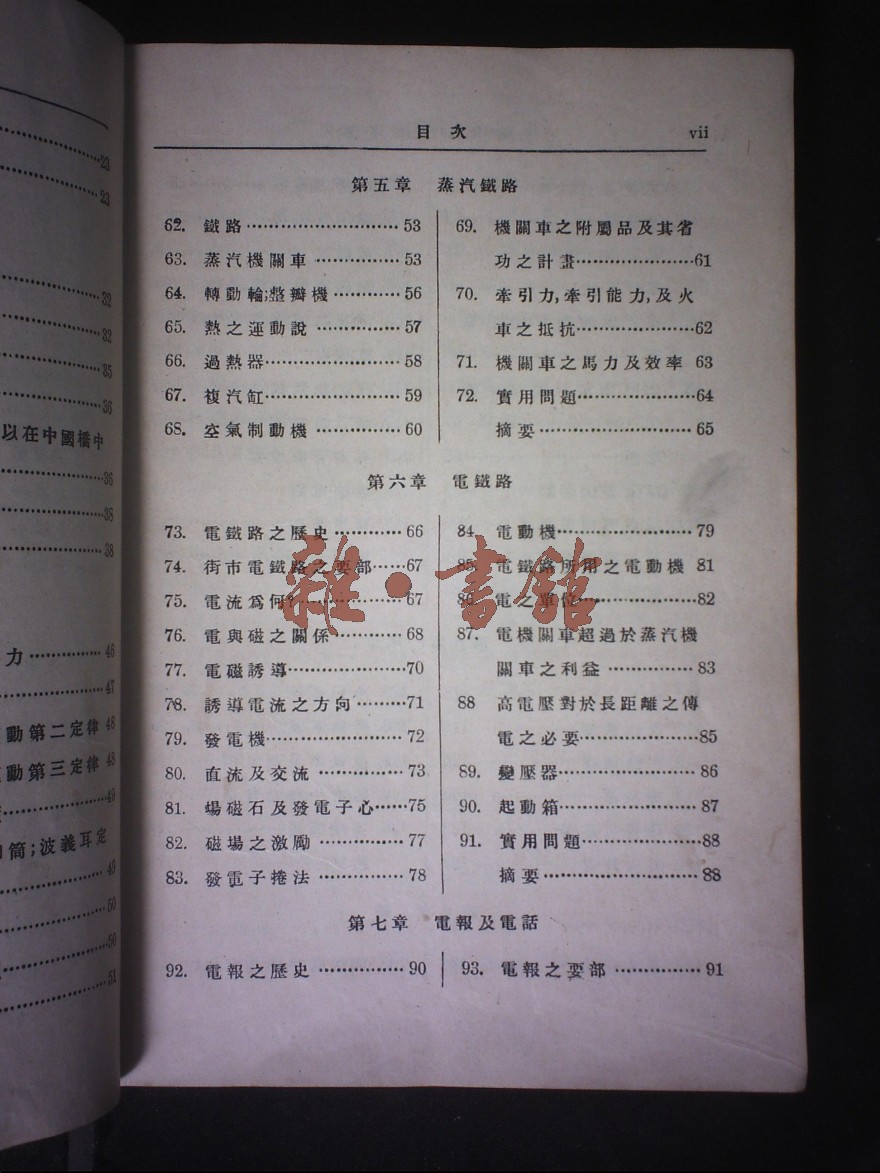 23
23
32
32
35
36
以在中國橋中
36
38
38
力…………… 46
47
動第二定律 48
動第三定律 48
49
筒;波義耳定
49
50
50
51
目次 vii
第五章 蒸汽鐵路
62. 鐵路………………………… 53
63. 蒸汽機關車 …………… 53
64. 轉動輪;整瓣機 ………… 56
65. 熱之運動說 …………… 57
66. 過熱器……………………… 58
67. 複汽缸……………………… 59
68. 空氣制動機 …………… 60
69. 機關車之附屬品及其省
功之計畫…………………61
70. 牽引力,牽引能力,及火
車之抵抗…………………62
71. 機關車之馬力及效率 63
72. 實用問題…………………64
摘要………………………… 65
第六章 電鐵路
73. 電鐵路之歷史 ………… 66
74. 街市電鐵路之要部……67
75. 電流爲何?………………67
76. 電與磁之關係………… 68
77. 電磁誘導…………………70
78. 誘導電流之方向………71
79. 發電機……………………… 72
80. 直流及交流 …………… 73
81. 場磁石及發電子心……75
82. 磁場之激勵 …………… 77
83. 發電子捲法 …………… 78
84. 電動機……………………… 79
85. 電鐵路所用之電動機 81
86. 電之單位…………………82
87. 電機關車超過於蒸汽機
關車之利益 …………… 83
88 高電壓對於長距離之傳
電之必要…………………85
89. 變壓器……………………… 86
90. 起動箱……………………… 87
91. 實用問題…………………88
摘要………………………… 88
第七章 電報及電話
92. 電報之歷史 …………… 90
93. 電報之要部 …………… 91
雜·書館